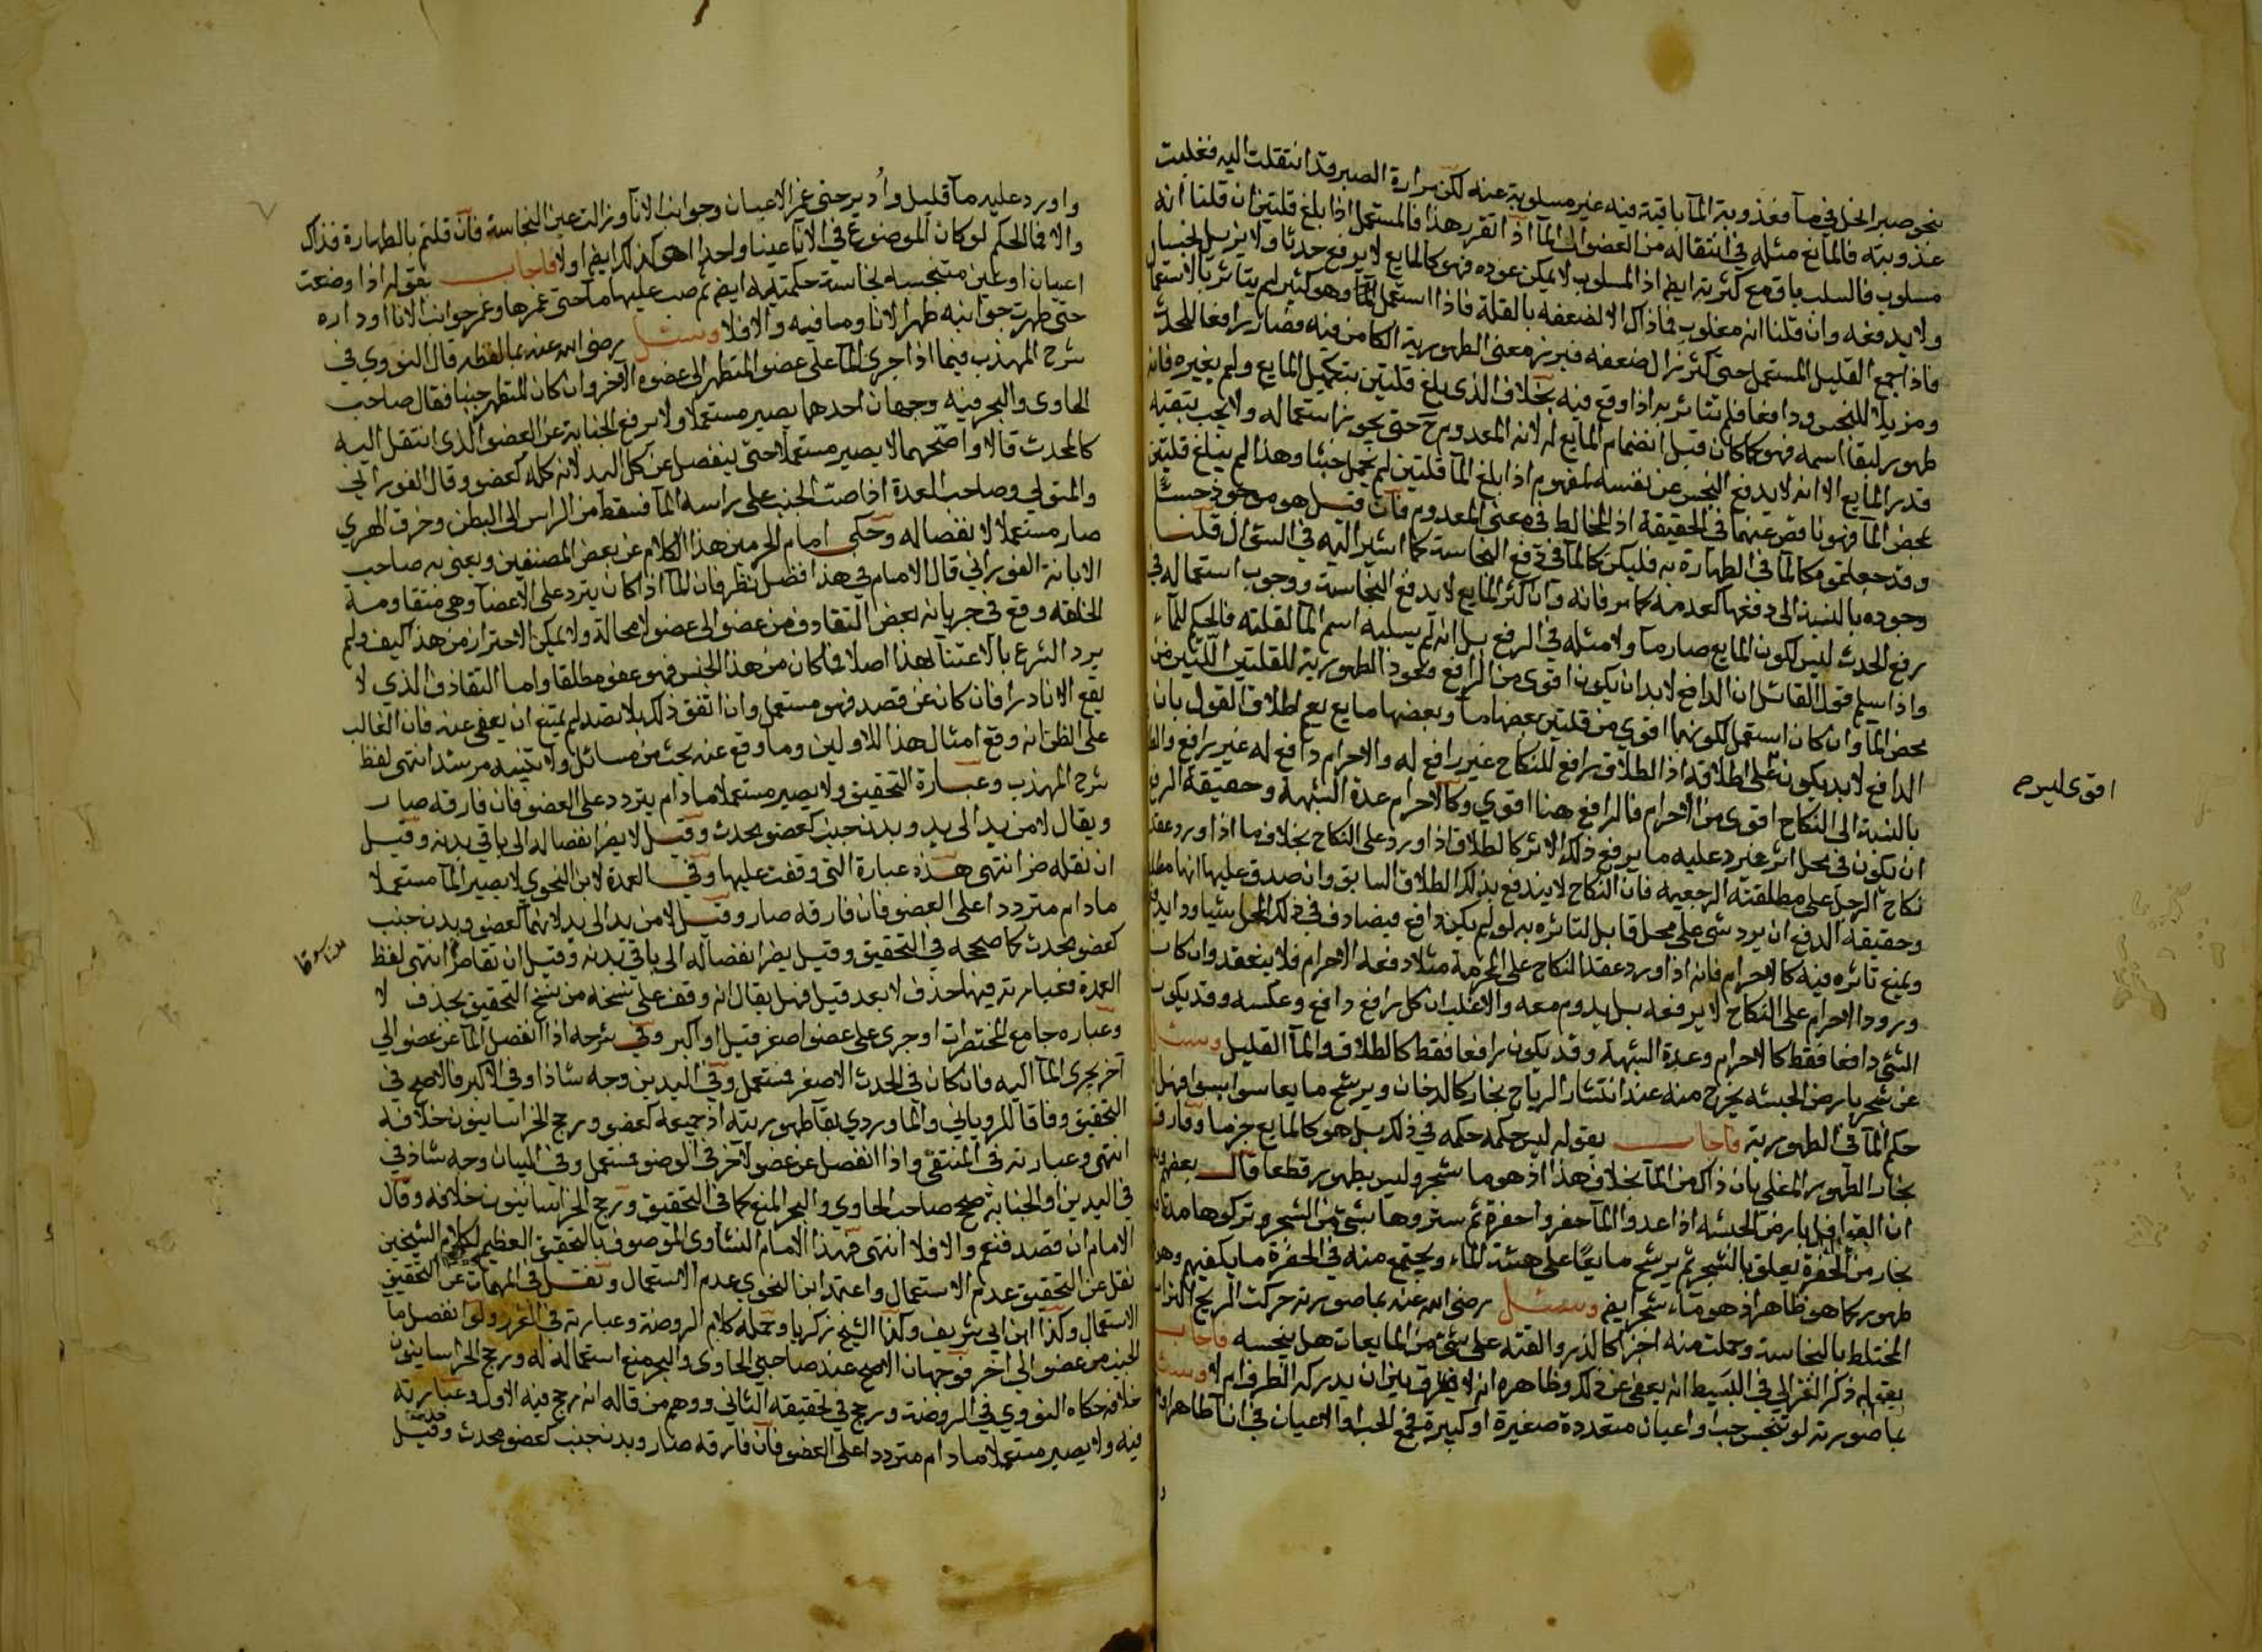 بنحو صبر الخل في مآ فعذوبة المآ باقية فيه غير مسلوبة عنه لكن مرارة الصبر قد انتقلت اليه فغلبت
عذوبته فالمآئع مثله في انتقاله من العضو الى المآ اذا تقرر هذا فالمستعمل اذا بلغ قلتين ان قلنا انه
مسلوب فالسلب باق مع كثرته ايضا اذ المسلوب لا يمكن عوده فهو كالمايع لا يرفع حدثا ولا يزيل نجسا بل
ولا يدفعه وان قلنا انه مغلوب فاذاك الا لضعفه بالقلة فاذا استعمل المآ وهو كثير لم يتاثر بالاستعمال
فاذا جمع القليل المستعمل حتى كثر زال ضعفه فبرز معنى الطهورية الكامن فيه فصار رافعا للحدث
ومزيلا للنجس ودافعا فلم يتاثر به اذا وقع فيه بخلاف الذي بلغ قلتين بتكميل المايع ولم يغيره فانه
طهور لبقا اسمه فهو كما كان قبل انضمام المايع له لانه المعدوم ح حتى يجوز استعماله ولا يجب بتقيه
قدر المايع الا انه لا يدفع النجس عن نفسه لمفهوم اذا بلغ المآ قلتين لم يحمل خبثا وهذا لم يبلغ قلتين
بمحض المآ فهو ناقص عنهما في الحقيقة اذ المخالط في معنى المعدوم فان قيل هو موجود حسا
وقد جعلتموه كالمآ في الطهارة به فليكن كالمآ في دفع النجاسة كما اشير اليه في السؤال قلنا
وجوده بالنسبة الى دفعها كعدمه كما مر فانه وان كثر المايع لا يدفع النجاسة ووجوب استعماله في
رفع الحدث ليس لكون المايع صار مآ ولا مثله في الرفع بل انه لم يسلبه اسم المآ لقلته فالحكم للمآء
واذا سلم فقول القائل ان الدافع لابد ان يكون اقوى من الرافع وتعود الطهورية للقلتين اللتين من
محض المآ وان كان استعمل لكونهما اقوى من قلتين بعضها مآ وبعضها مايع يعم اطلاق القول بان
الدافع لابد يكون على اطلاقه اذ الطلاق رافع للنكاح غير رافع له والاحرام دافع له غير رافع والطلاق
بالنسبة الى النكاح اقوى من الاحرام فالرافع هنا اقوى وكالاحرام عدة الشبهة وحقيقة الرفع
ان تكون في محل اثر فيرد عليه ما يرفع ذلك الاثر كالطلاق اذا ورد على النكاح بخلاف ما اذا ورد عقد
نكاح الرجل على مطلقته الرجعية فان النكاح لا يندفع بذلك الطلاق السابق وان صدق عليها انها
وحقيقة الدفع ان يرد شي على محل قابل لتاثره به لو لم يكن دافع فيصادف في ذلك المحل شيا
ويمنع تاثره فيه كالاحرام فانه اذا ورد عقد النكاح على المحرمة مثلا دفعه الاحرام فلا ينعقد وان كان
ورود الاحرام على النكاح لا يرفعه بل يدوم معه والاغلب ان كل رافع دافع وعكسه وقد يكون
الشي دافعا فقط كالاحرام وعدة الشبهة وقد يكون رافعا فقط كالطلاق والمآ القليل وسئل
عن شجر بارض الحبشه يخرج منه عند انتشار الرياح بخار كالدخان ويرشح مايعا سوا بسوا فهل له
حكم المآ في الطهورية فاجاب بقوله ليس حكمه حكمه في ذلك بل هو كالمايع جزما وفارق
بخار الطهور المغلى بان ذاك من المآ بخلاف هذا اذ هو ما شجر وليس بطهور قطعا قال بعضهم
ان القوافل بارض الحبشه اذا عدوا المآ حفروا حفرة ثم ستروها بشي من الشجر وتركوها مدة
بخار من الحفرة يعلق بالشجر ثم يرشح مايعا على هيئة المآء ويجتمع منه في الحفرة ما يكفيهم وهو
طهور كما هو ظاهر اذ هو مآء شجر ايضا وسئل رضي الله عنه بما صورته حركت الريح التراب
المختلط بالنجاسة وحملت منه اجزا كالذر والقته على شي من المايعات هل ينجسه فاجاب
بقوله ذكر الغزالي في البسيط انه يعفى عن ذلك وظاهره انه لا فرق بين ان يدركه الطرف ام لا وسئل
بما صورته لو تنجس حب او اعيان متعددة صغيرة او كبيرة فجمع الحب او الاعيان في انآ طاهر
اقوى ليس م
واورد عليه مآ قليل وادير حتى غمر الاعيان وجوانب الانآ وزالت عين النجاسة فان قلتم بالطهارة فذاك
والا فما الحكم لو كان الموضوع في الانآ عينا واحدا هي كذلك ايضا او لا فاجاب بقوله اذا وضعت
اعيان او عين متنجسة نجاسة حكمية ايضا ثم صب عليها مآ حتى غمرها وغمر جوانب الانا او اداره
حتى طهرت جوانبه طهر الانا وما فيه والا فلا وسئل رضي الله عنه بما لفظه قال النووي في
شرح المهذب فيما اذا جرى المآ على عضو المتطهر الى عضوه الآخر وان كان المتطهر جنبا فقال صاحب
الحاوى والبحر فيه وجهان احدهما يصير مستعملا ولا يرفع الجنابة عن العضو الذى انتقل اليه
كالمحدث قالا واصحهما لا يصير مستعملا حتى ينفصل عن كل البدن لانه كله كعضو وقال الفوراني
والمتولي وصاحب العدة اذا صب الجنب على راسه المآ فسقط من الراس الى البطن وخرق الهوى
صار مستعملا لانفصاله وحكى امام الحرمين هذا الكلام عن بعض المصنفين ويعنى به صاحب
الابانة الفوراني قال الامام في هذا فضل نظر فان المآ اذا كان يتردد على الاعضآ وهى متفاوتة
الخلقة وقع في جريانه بعض التقاذف من عضو الى عضو لا محالة ولا يمكن الاحتراز من هذا كيف ولم
يرد الشرع بالاعتنآ بهذا اصلا فما كان من هذا الجنس فهو عفو مطلقا واما التقاذف الذي لا
يقع الا نادرا فان كان عن قصد فهو مستعمل وان اتفق ذلك بلا قصد لم يمتنع ان يعفى عنه فان الغالب
على الظن انه وقع امثال هذا للاولين وما وقع عنه بحث من مسائل ولا تنبيه مرشد انتهى لفظ
شرح المهذب وعبارة التحقيق ولا يصير مستعملا ما دام يتردد على العضو فان فارقه صار
ويقال لا من يد الى يد وبدن جنب كعضو محدث وقيل لا يضر انفصاله الى باقي بدنه وقيل
ان نقله ضر انتهى هذه عبارة التى وقفت عليها وفي العمدة لابن النحوي لا يصير المآ مستعملا
مادام مترددا على العضو فان فارقه صار وقيل لا من يد الى يد لانهما كعضو وبدن جنب
كعضو محدث كما صححه في التحقيق وقيل يضر انفصاله الى باقي بدنه وقيل ان تقاطر انتهى لفظ
العمدة فعبارته فيها حذف لا بعد قيل فهل يقال انه وقف على نسخة من نسخ التحقيق بحذف لا
وعباره جامع المختصرات او جرى على عضو اصغر قيل او اكبر وفي شرحه اذا انفصل المآ عن عضو الى
آخر يجرى المآ اليه فان كان في الحدث الاصغر فمستعمل وفي اليدين وجه شاذ او في الاكبر فالاصح في
التحقيق وفاقا للروياني والماوردي بقآ طهوريته اذ جميعه كعضو ورجح الخراسانيون خلافه
انتهى وعبارته في المنتقى واذا انفصل عن عضو لآخر في الوضو فمستعمل وفي البيان وجه شاذ في
في اليدين او الجنابة صحح صاحب الحاوي والبحر المنع كما في التحقيق ورجح الخراسانيون خلافه وقال
الامام ان قصد فنعم والا فلا انتهى فهذا الامام النشاوى الموصوف بالتحقيق العظيم لكلام الشيخين
نقل عن التحقيق عدم الاستعمال واعتمد ابن النحوي عدم الاستعمال ونقل في المهمات عن التحقيق
الاستعمال وكذا ابن ابي شريف وكذا الشيخ زكريا وحمله كلام الروضة وعبارته في الغرر ولو انفصل ما
الجنب من عضو الى اخر فوجهان الاصح عند صاحبي الحاوى والبحر منع استعماله له ورجح الخراسانيون
خلافه حكاه النووي في الروضة ورجح في تحقيقه الثاني ووهم من قال انه رجح فيه الاول وعبارته
فيه ولا يصير مستعملا مادام مترددا على العضو فان فارقه صار وبدن جنب كعضو محدث وقيل